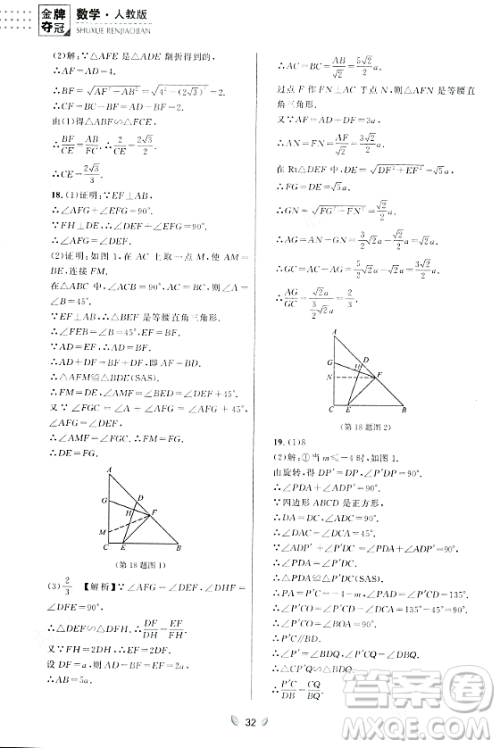 金牌夺冠 数学·人教版
SHUXUE RENJIAOBAN
(2)解:∵△AFE 是△ADE 翻折得到的,
∴AF=AD=4.
∴BF=√(AF²-AB²)=√(4²-(2√3)²)=2.
由(1)得△ABF∽△FCE,
∴BF/CE=AB/FC. ∴2/CE=2√3/2.
∴CE=2√3/3.
18.(1)证明:∵EF⊥AB,
∴∠AFG+∠EFG=90°.
∵FH⊥DE,∴∠DEF+∠EFG=90°.
∴∠AFG=∠DEF.
(2)证明:如图 1,在 AC 上取一点 M,使 AM=
BE,连接 FM.
在△ABC 中,∠ACB=90°,∠A=45°,
∴∠B=45°.
又∵EF⊥AB,∴△BEF 为等腰直角三角形.
∴EF=BF.
∵AD=EF,∴AD=BF.
∴AD+DF=BF+DF,即AF=BD.
∴△AMF≌△BED(SAS).
∴FM=DE,∠AMF=∠BED=∠BEF+∠DEF.
又∵∠FGC=∠A+∠AFG=45°+∠DEF,
∴∠AMF=∠FGC. ∴FM=FG.
∴DE=FG.
A
D
G
H
M
F
C
E
B
(第 18 题图 1)
(3)2/3 【解析】∵∠AFG=∠DEF,∠DHF=
∠DFE=90°,
∴△DHF∽△DFE. ∴DF/DH=EF/FH.
又∵FH=2DH,∴EF=2DF.
设 DF=a,则 AD=EF=BF=2a,
∴AB=5a.
∴AC=BC=AB/√2=5/2√2a.
过点 F 作 FN⊥AC 于点 N,则△ANF 是等腰直
角三角形.
∵AF=AD+DF=3a,
∴AN=FN=AF/√2=3/2√2a.
在 Rt△DEF 中,DE=√(DF²+EF²)=√5a,
∴FG=√5a.
∴GN=√(FG²-FN²)=√2/2a.
∴AG=AN-GN=3/2√2a-√2/2a=√2a.
∴GC=AC-AG=5/2√2a-√2a=3/2√2a.
∴AG/GC=√2a/(3/2√2a)=2/3.
A
D
G
H
N
F
C
E
B
(第 18 题图 2)
19.(1)8
(2)解:①当 m≤-4时,如图 1.
由旋转,得 DP'=DP,∠P'DP=90°.
∴∠PDA+∠P'DA=90°.
∵四边形 OABC 是正方形,
∴∠P'DA+∠P'DC=90°.
∴∠PDA=∠P'DC.
∴△PDA≌△P'DC(SAS).
∴PA=P'C,∠P'CD=∠PAD=90°.
又∵∠DCB=90°,
∴P',C,B 三点共线,即 P'C∥AO.
∴△CP'Q∽△APQ.
∴P'C/PA=CQ/AQ. ∴CQ=AQ.
32
答案圈
MXQE.COM